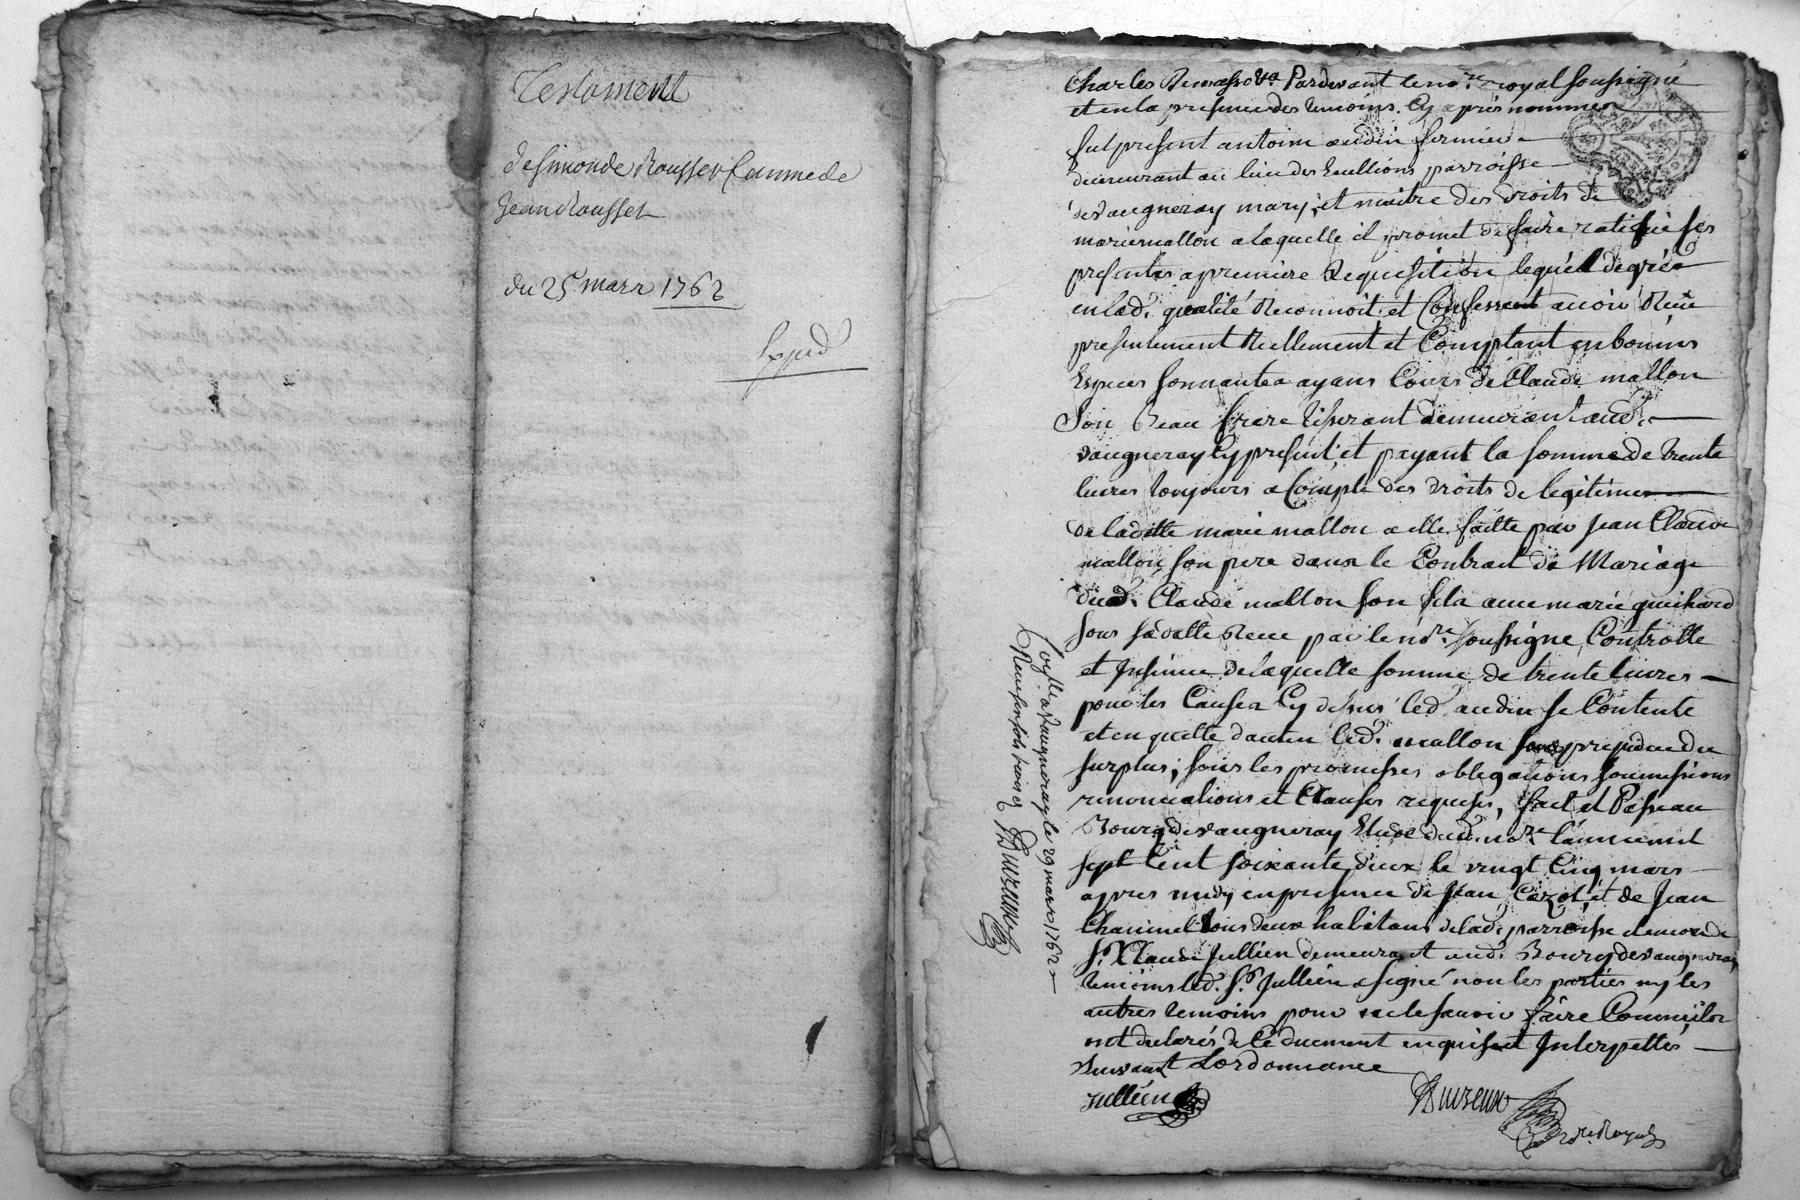 Testament
de Simonde Rousset femme de
Jean Rousset
du 25 mars 1762
Expéd
Pardevant le no.re royal soussigné
et en la presence des temoins cy apres nommes
fut present antoine audin fermier
demeurant au lieu des parroisse
de vaugneray mary et maitre des droits de
marie mallon a laquelle il promet de faire ratifié ses
presentes a premiere Requisition lequel de gré
en lad. qualité Reconnoit et Confesse avoir Reçu
presentement Réellement et Comptant en bonnes
Especes sonnantes ayans Cours de Claude mallon
Son Beau frere tisserant demeurant aud.
vaugneray Cy present et payant la somme de trente
livres toujours a Compte des droits de legitime
de ladette marie mallon a elle faitte par Jean Claude
mallon son pere dans le Contract de Mariage
dud. Claude mallon son fils avec marie guichard
sous sa datte Recu par le no.re soussigne, Controllé
et Insinué de laquelle somme de trente livres
pour les Causes Cy dessus led. audin se Contente
et en quitte d'autan led. mallon sans prejudice du
surplus, sous les promesses obligations soumissions
renonciations et Clauses requises, fait et Passé au
Bourg de vaugneray Etude dud. no.re l'an mil
sept Cent soixante deux le vingt Cinq mars
apres midy en presence de Jean Cezot et de Jean
Chaninel tous deux habitans de lad. parroisse et encore de
S.r Claude Jullien demeurant aud. Bourg de vaugneray
temoins led. S.r Jullien a signé non les parties ny les
autres temoins pour ne le savoir faire Comme ils
ont declarés de Ce duement enquis et Interpellés
suivant L'ordonnance
Jullien
no.re Royal
Con.llé a Vaugneray le 29 mars 1762
Reçu six sols